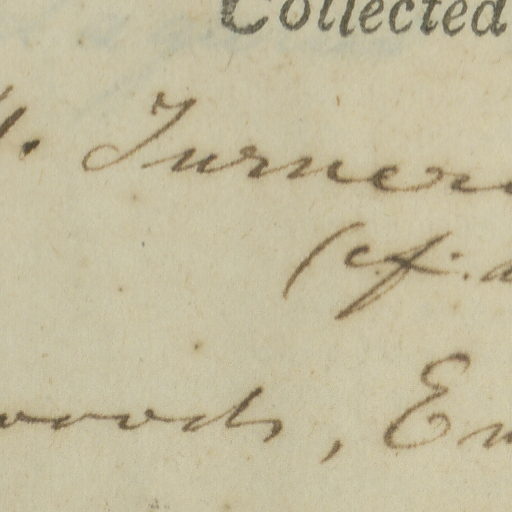 Collected
. Turner
(cf.
woods, En